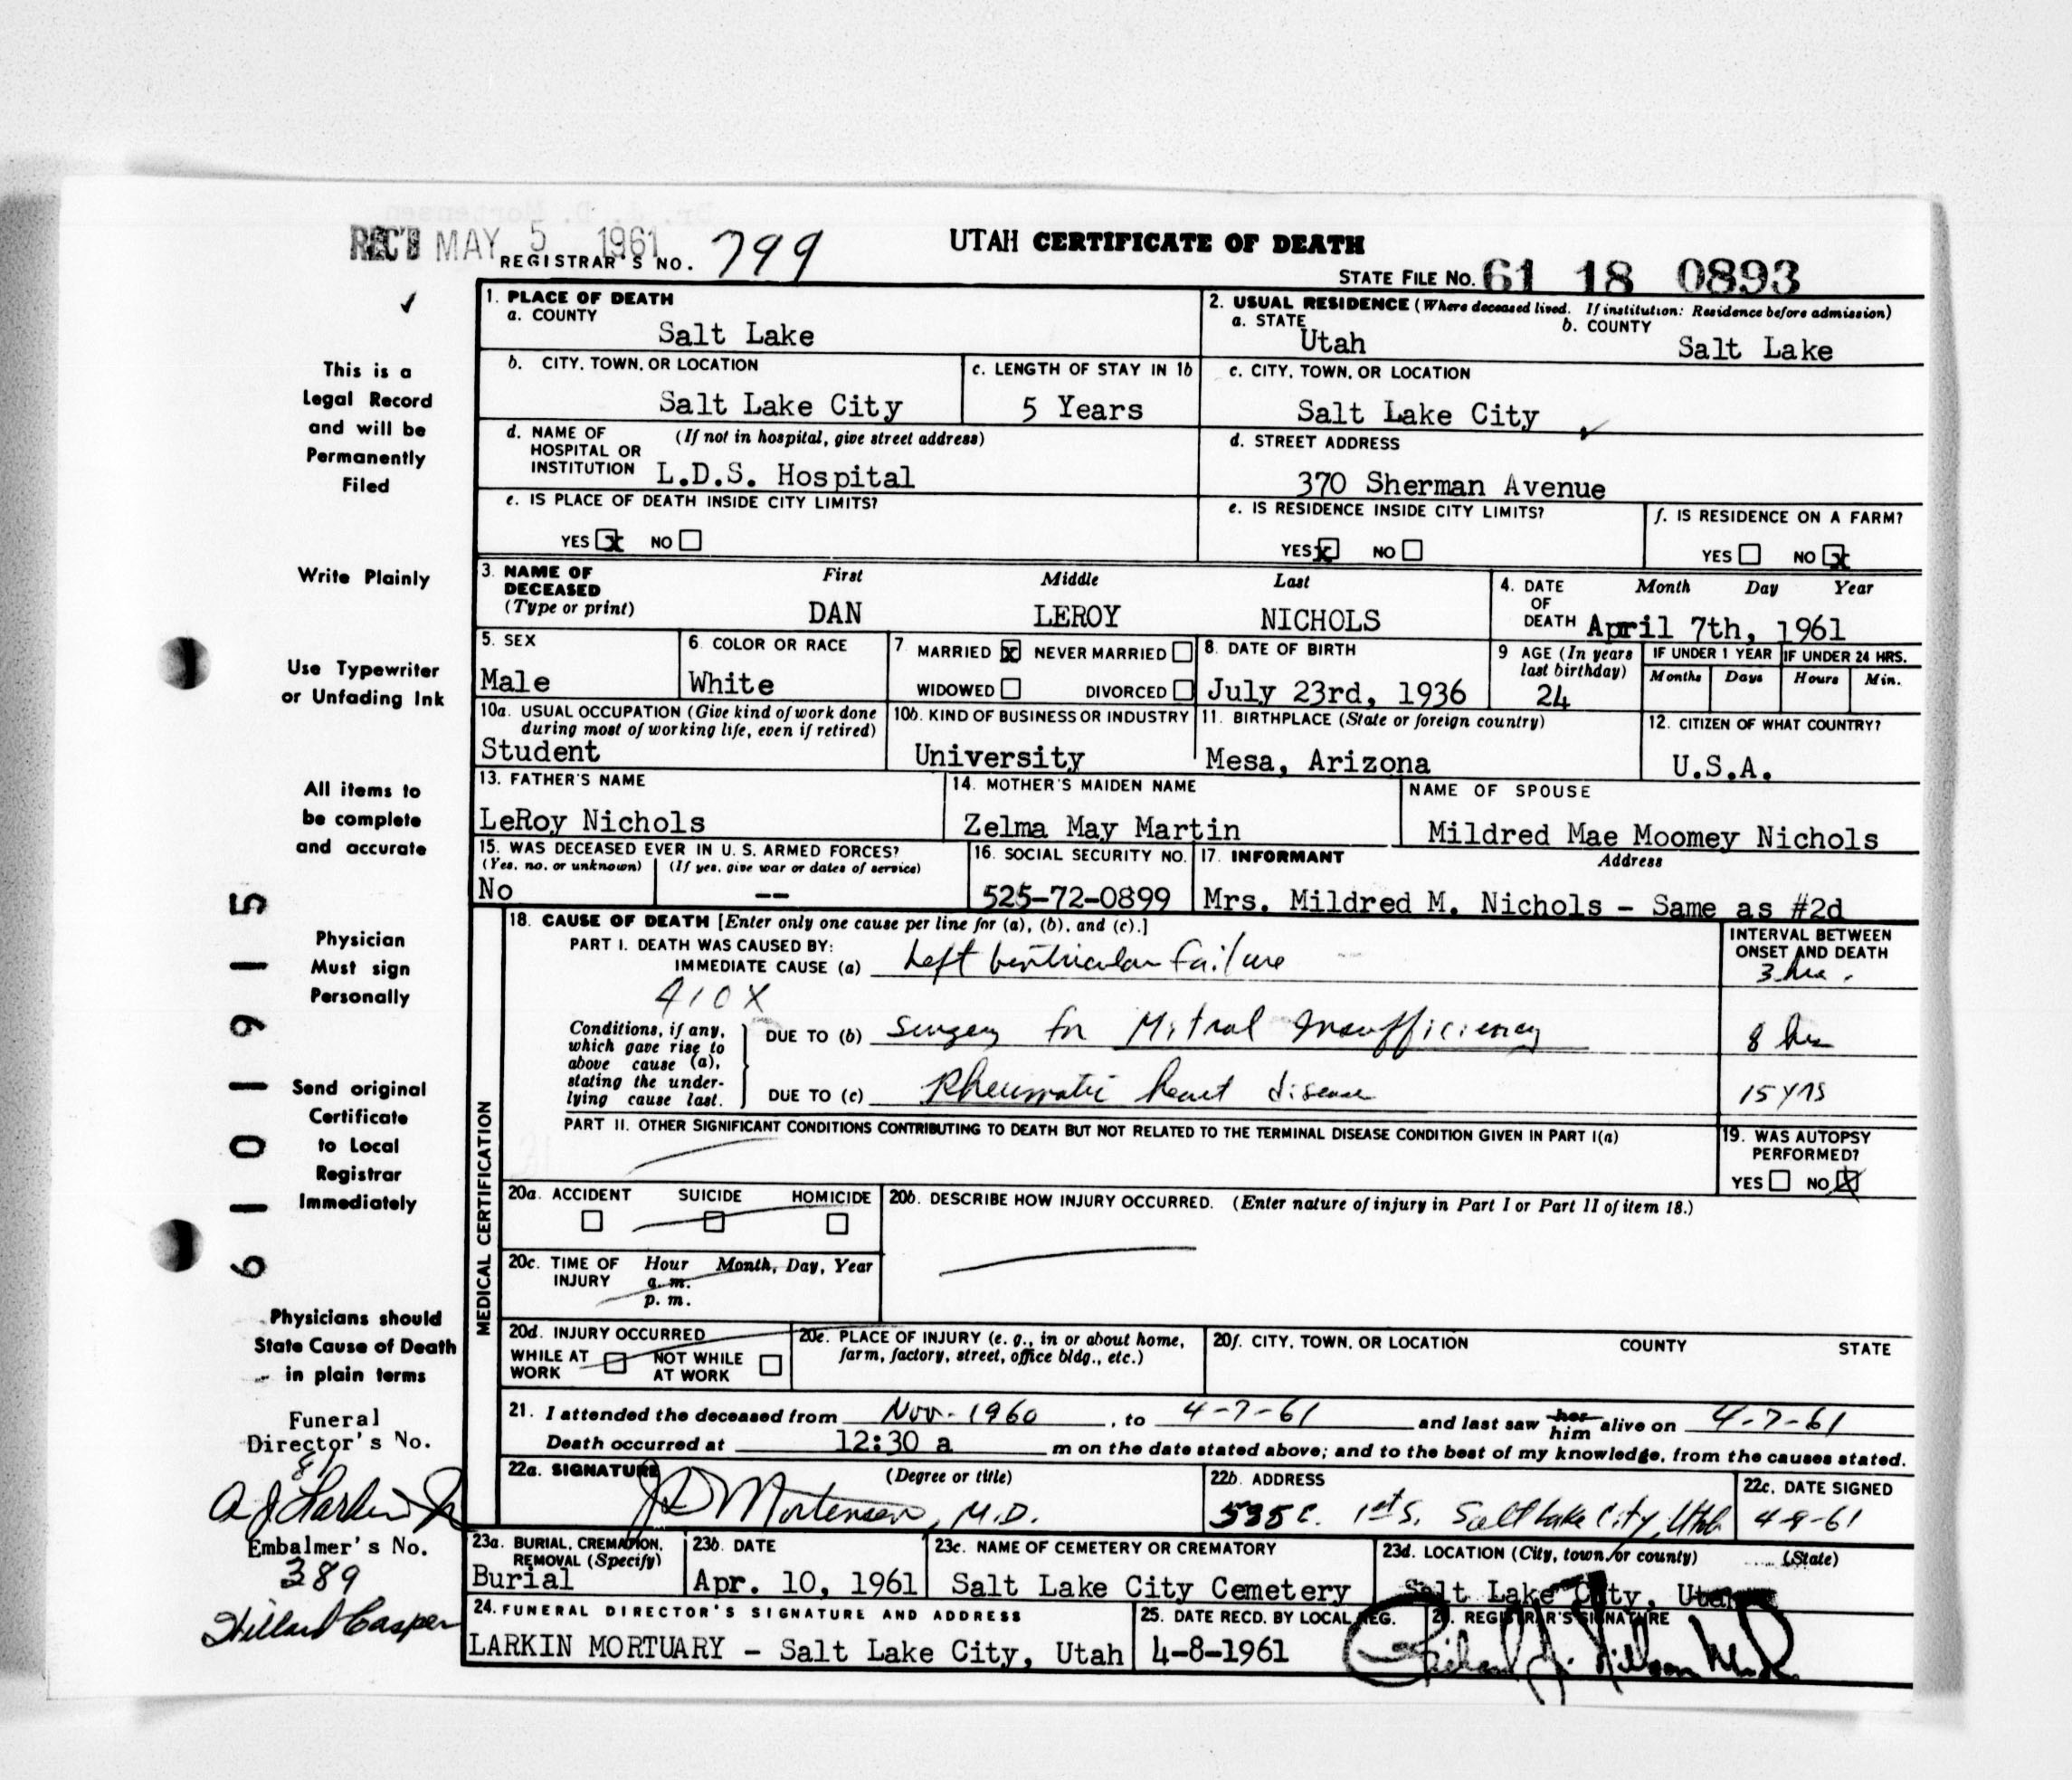 REC'D MAY 5 1961
REGISTRAR'S NO. 799
UTAH CERTIFICATE OF DEATH
STATE FILE NO. 61 18 0893
This is a
Legal Record
and will be
Permanently
Filed
Write Plainly
Use Typewriter
or Unfading Ink
All items to
be complete
and accurate
Physician
Must sign
Personally
Send original
Certificate
to Local
Registrar
Immediately
Physicians should
State Cause of Death
in plain terms
Funeral
Director's No.
Embalmer's No.
389
Hillard Casper
6 1 0 1 9 1 5
1. PLACE OF DEATH
a. COUNTY
Salt Lake
2. USUAL RESIDENCE (Where deceased lived. If institution: Residence before admission)
a. STATE
Utah
b. COUNTY
Salt Lake
b. CITY, TOWN, OR LOCATION
Salt Lake City
c. LENGTH OF STAY IN 1b
5 Years
c. CITY, TOWN, OR LOCATION
Salt Lake City
d. NAME OF HOSPITAL OR INSTITUTION (If not in hospital, give street address)
L.D.S. Hospital
d. STREET ADDRESS
370 Sherman Avenue
e. IS PLACE OF DEATH INSIDE CITY LIMITS?
YES x NO
e. IS RESIDENCE INSIDE CITY LIMITS?
YES x NO
f. IS RESIDENCE ON A FARM?
YES NO x
3. NAME OF DECEASED (Type or print)
First Middle Last
DAN LEROY NICHOLS
4. DATE OF DEATH Month Day Year
April 7th, 1961
5. SEX
Male
6. COLOR OR RACE
White
7. MARRIED x NEVER MARRIED
WIDOWED DIVORCED
8. DATE OF BIRTH
July 23rd, 1936
9 AGE (In years last birthday)
24
IF UNDER 1 YEAR
Months Days
IF UNDER 24 HRS.
Hours Min.
10a. USUAL OCCUPATION (Give kind of work done during most of working life, even if retired)
Student
10b. KIND OF BUSINESS OR INDUSTRY
University
11. BIRTHPLACE (State or foreign country)
Mesa, Arizona
12. CITIZEN OF WHAT COUNTRY?
U.S.A.
13. FATHER'S NAME
LeRoy Nichols
14. MOTHER'S MAIDEN NAME
Zelma May Martin
NAME OF SPOUSE
Mildred Mae Moomey Nichols
15. WAS DECEASED EVER IN U. S. ARMED FORCES?
(Yes, no, or unknown) (If yes, give war or dates of service)
No --
16. SOCIAL SECURITY NO.
525-72-0899
17. INFORMANT Address
Mrs. Mildred M. Nichols - Same as #2d
MEDICAL CERTIFICATION
18. CAUSE OF DEATH [Enter only one cause per line for (a), (b), and (c).]
PART I. DEATH WAS CAUSED BY:
IMMEDIATE CAUSE (a) Left Ventricular Failure
INTERVAL BETWEEN ONSET AND DEATH
3 hrs.
410X
Conditions, if any, which gave rise to above cause (a), stating the underlying cause last.
DUE TO (b) Surgery for Mitral Insufficiency
8 hrs
DUE TO (c) Rheumatic heart disease
15 yrs
PART II. OTHER SIGNIFICANT CONDITIONS CONTRIBUTING TO DEATH BUT NOT RELATED TO THE TERMINAL DISEASE CONDITION GIVEN IN PART I(a)
19. WAS AUTOPSY PERFORMED?
YES NO X
20a. ACCIDENT SUICIDE HOMICIDE
20b. DESCRIBE HOW INJURY OCCURRED. (Enter nature of injury in Part I or Part II of item 18.)
20c. TIME OF INJURY Hour Month, Day, Year
a. m.
p. m.
20d. INJURY OCCURRED
WHILE AT WORK NOT WHILE AT WORK
20e. PLACE OF INJURY (e. g., in or about home, farm, factory, street, office bldg., etc.)
20f. CITY, TOWN, OR LOCATION COUNTY STATE
21. I attended the deceased from Nov. 1960, to 4-7-61 and last saw her him alive on 4-7-61
Death occurred at 12:30 a m on the date stated above; and to the best of my knowledge, from the causes stated.
22a. SIGNATURE (Degree or title)
J D Mortensen, M.D.
22b. ADDRESS
535 E. 1st S. Salt Lake City, Utah
22c. DATE SIGNED
4-8-61
23a. BURIAL, CREMATION, REMOVAL (Specify)
Burial
23b. DATE
Apr. 10, 1961
23c. NAME OF CEMETERY OR CREMATORY
Salt Lake City Cemetery
23d. LOCATION (City, town, or county) (State)
Salt Lake City, Utah
24. FUNERAL DIRECTOR'S SIGNATURE AND ADDRESS
LARKIN MORTUARY - Salt Lake City, Utah
25. DATE RECD. BY LOCAL REG.
4-8-1961
26. REGISTRAR'S SIGNATURE